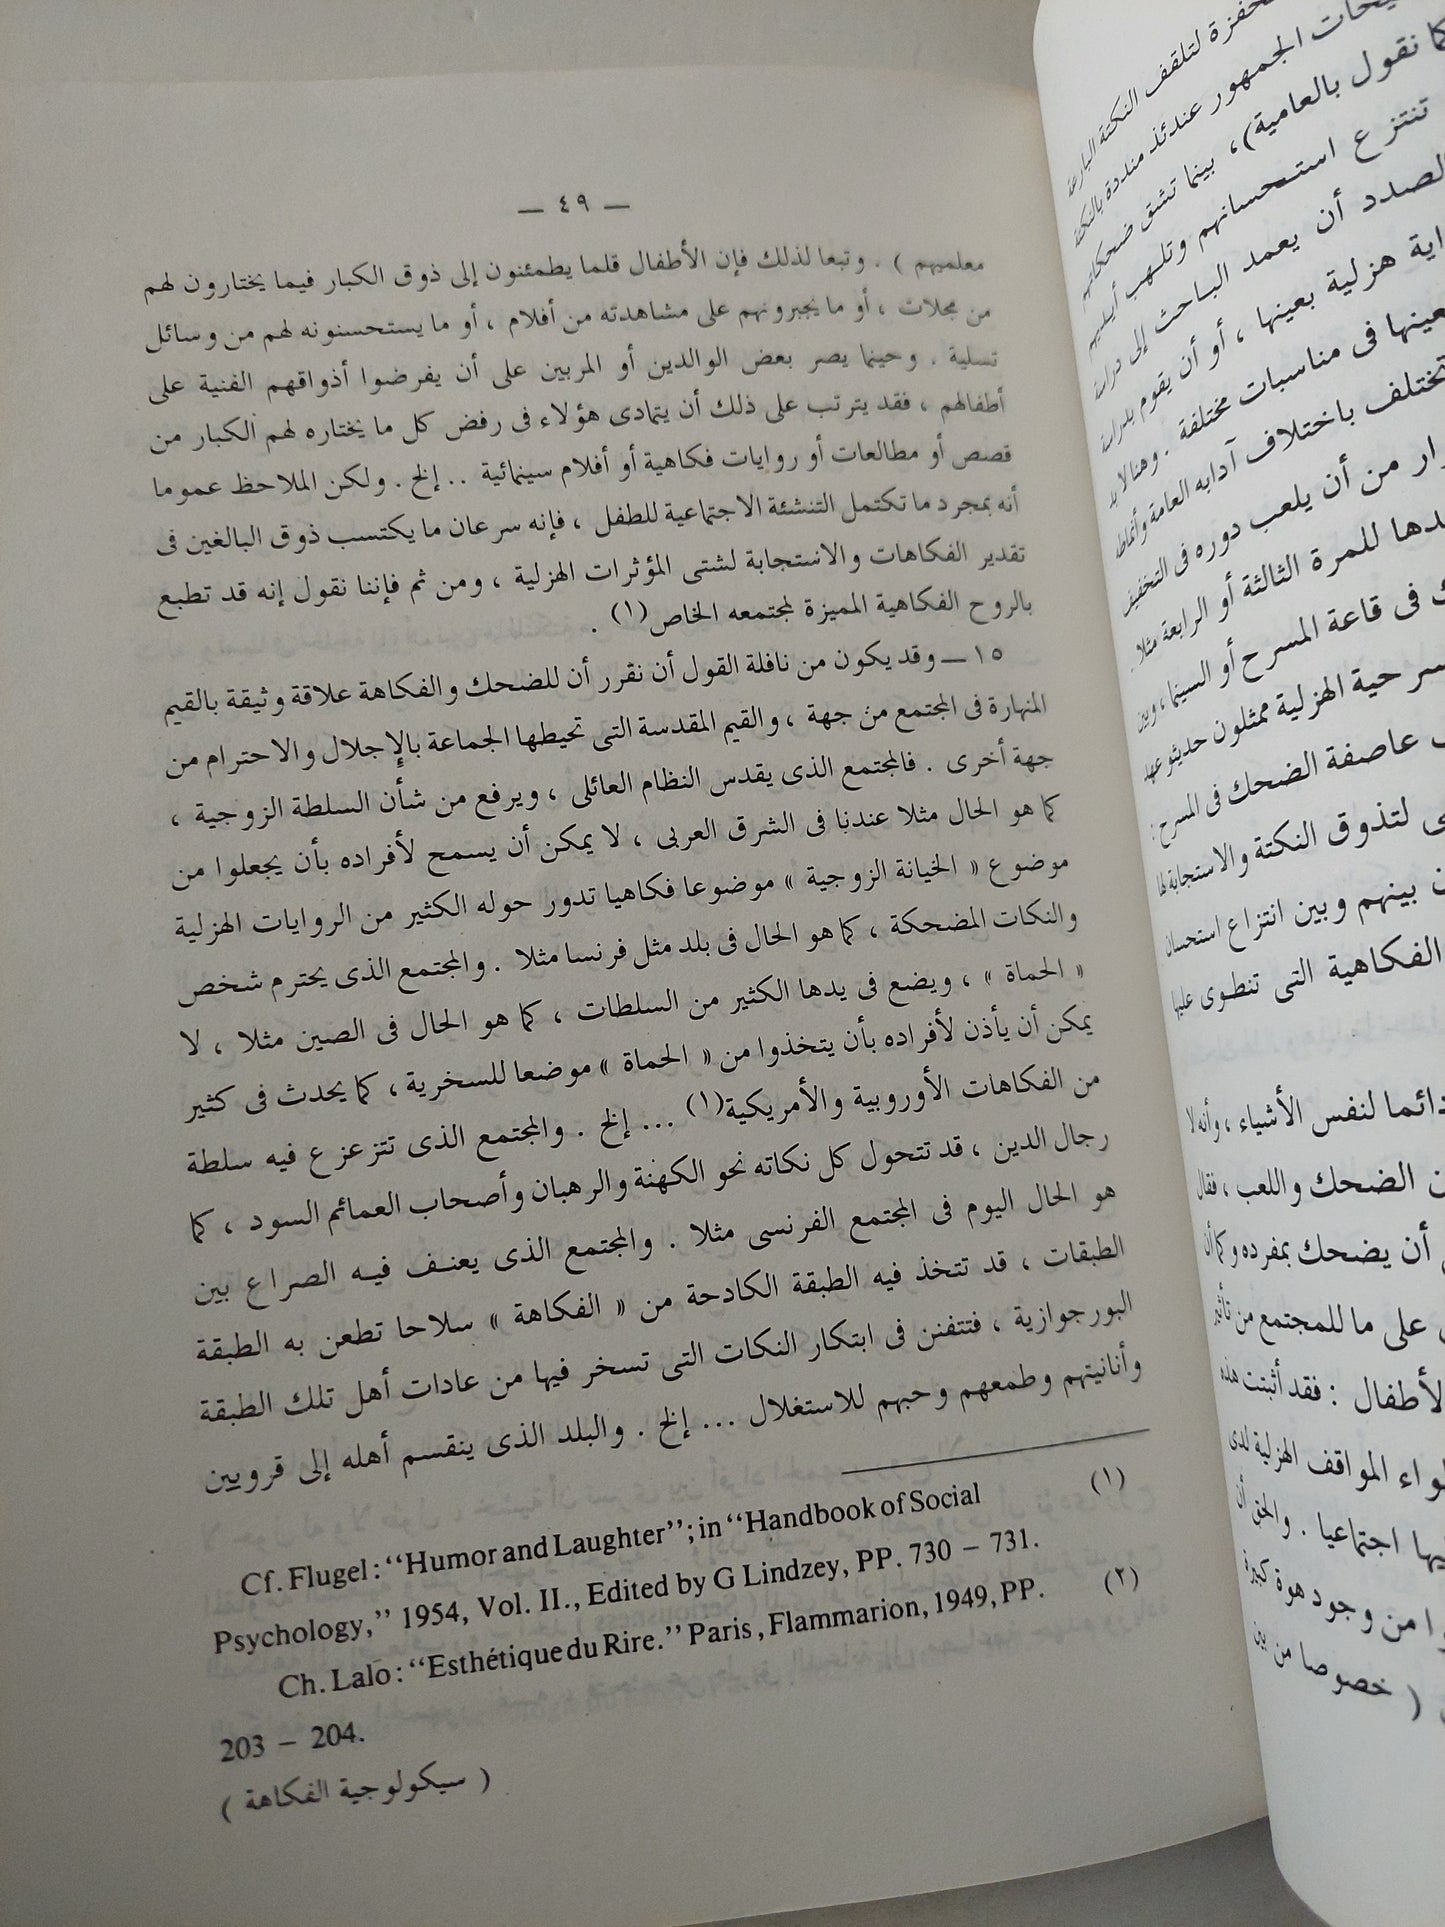 — ٤٩ —
معلميهم ) . وتبعا لذلك فإن الأطفال قلما يطمئنون إلى ذوق الكبار فيما يختارون لهم
من مجلات ، أو ما يجبرونهم على مشاهدته من أفلام ، أو ما يستحسنونه لهم من وسائل
تسلية . وحينما يصر بعض الوالدين أو المربين على أن يفرضوا أذواقهم الفنية على
أطفالهم ، فقد يترتب على ذلك أن يتمادى هؤلاء فى رفض كل ما يختاره لهم الكبار من
قصص أو مطالعات أو روايات فكاهية أو أفلام سينمائية .. إلخ . ولكن الملاحظ عموما
أنه بمجرد ما تكتمل التنشئة الاجتماعية للطفل ، فإنه سرعان ما يكتسب ذوق البالغين فى
تقدير الفكاهات والاستجابة لشتى المؤثرات الهزلية ، ومن ثم فإننا نقول إنه قد تطبع
بالروح الفكاهية المميزة لمجتمعه الخاص(١) .
١٥ ــ وقد يكون من نافلة القول أن نقرر أن للضحك والفكاهة علاقة وثيقة بالقيم
المنهارة فى المجتمع من جهة ، والقيم المقدسة التى تحيطها الجماعة بالإجلال والاحترام من
جهة أخرى . فالمجتمع الذى يقدس النظام العائلى ، ويرفع من شأن السلطة الزوجية ،
كما هو الحال مثلا عندنا فى الشرق العربى ، لا يمكن أن يسمح لأفراده بأن يجعلوا من
موضوع « الخيانة الزوجية » موضوعا فكاهيا تدور حوله الكثير من الروايات الهزلية
والنكات المضحكة ، كما هو الحال فى بلد مثل فرنسا مثلا . والمجتمع الذى يحترم شخص
« الحماة » ، ويضع فى يدها الكثير من السلطات ، كما هو الحال فى الصين مثلا ، لا
يمكن أن يأذن لأفراده بأن يتخذوا من « الحماة » موضعا للسخرية ، كما يحدث فى كثير
من الفكاهات الأوروبية والأمريكية(١) ... إلخ . والمجتمع الذى تتزعزع فيه سلطة
رجال الدين ، قد تتحول كل نكاته نحو الكهنة والرهبان وأصحاب العمائم السود ، كما
هو الحال اليوم فى المجتمع الفرنسى مثلا . والمجتمع الذى يعنف فيه الصراع بين
الطبقات ، قد تتخذ فيه الطبقة الكادحة من « الفكاهة » سلاحا تطعن به الطبقة
البورجوازية ، فتتفنن فى ابتكار النكات التى تسخر فيها من عادات أهل تلك الطبقة
وأنانيتهم وطمعهم وحبهم للاستغلال ... إلخ . والبلد الذى ينقسم أهله إلى قرويين
(١)
Cf. Flugel : “Humor and Laughter”; in “Handbook of Social
Psychology,” 1954, Vol. II., Edited by G Lindzey, PP. 730 – 731.
(٢)
Ch. Lalo : “Esthétique du Rire.” Paris , Flammarion, 1949, PP.
203 – 204.
( سيكولوجية الفكاهة )
لتلقف النكتة البارعة
الجمهور عندئذ منددة بالنكتة
كما نقول بالعامية) ، بينما تشق ضحكاتهم
تنتزع استحسانهم وتلهب أيديهم
الصدد أن يعمد الباحث إلى دراسة
هزلية بعينها ، أو أن يقوم بدراسة
بعينها فى مناسبات مختلفة . وهنا لا بد
تختلف باختلاف آدابه العامة وأنماطه
من أن يلعب دوره فى التخفيف
للمرة الثالثة أو الرابعة مثلا .
فى قاعة المسرح أو السينما ، وبين
الهزلية ممثلون حديثو عهد
عاصفة الضحك فى المسرح :
لتذوق النكتة والاستجابة لها
بينهم وبين انتزاع استحسان
الفكاهية التى تنطوى عليها
دائما لنفس الأشياء ، وأنه لا
الضحك واللعب ، فقال
أن يضحك بمفرده وكما أن
على ما للمجتمع من تأثير
الأطفال : فقد أثبتت هذه
المواقف الهزلية لدى
اجتماعيا . والحق أن
من وجود هوة كبيرة
( خصوصا من بين